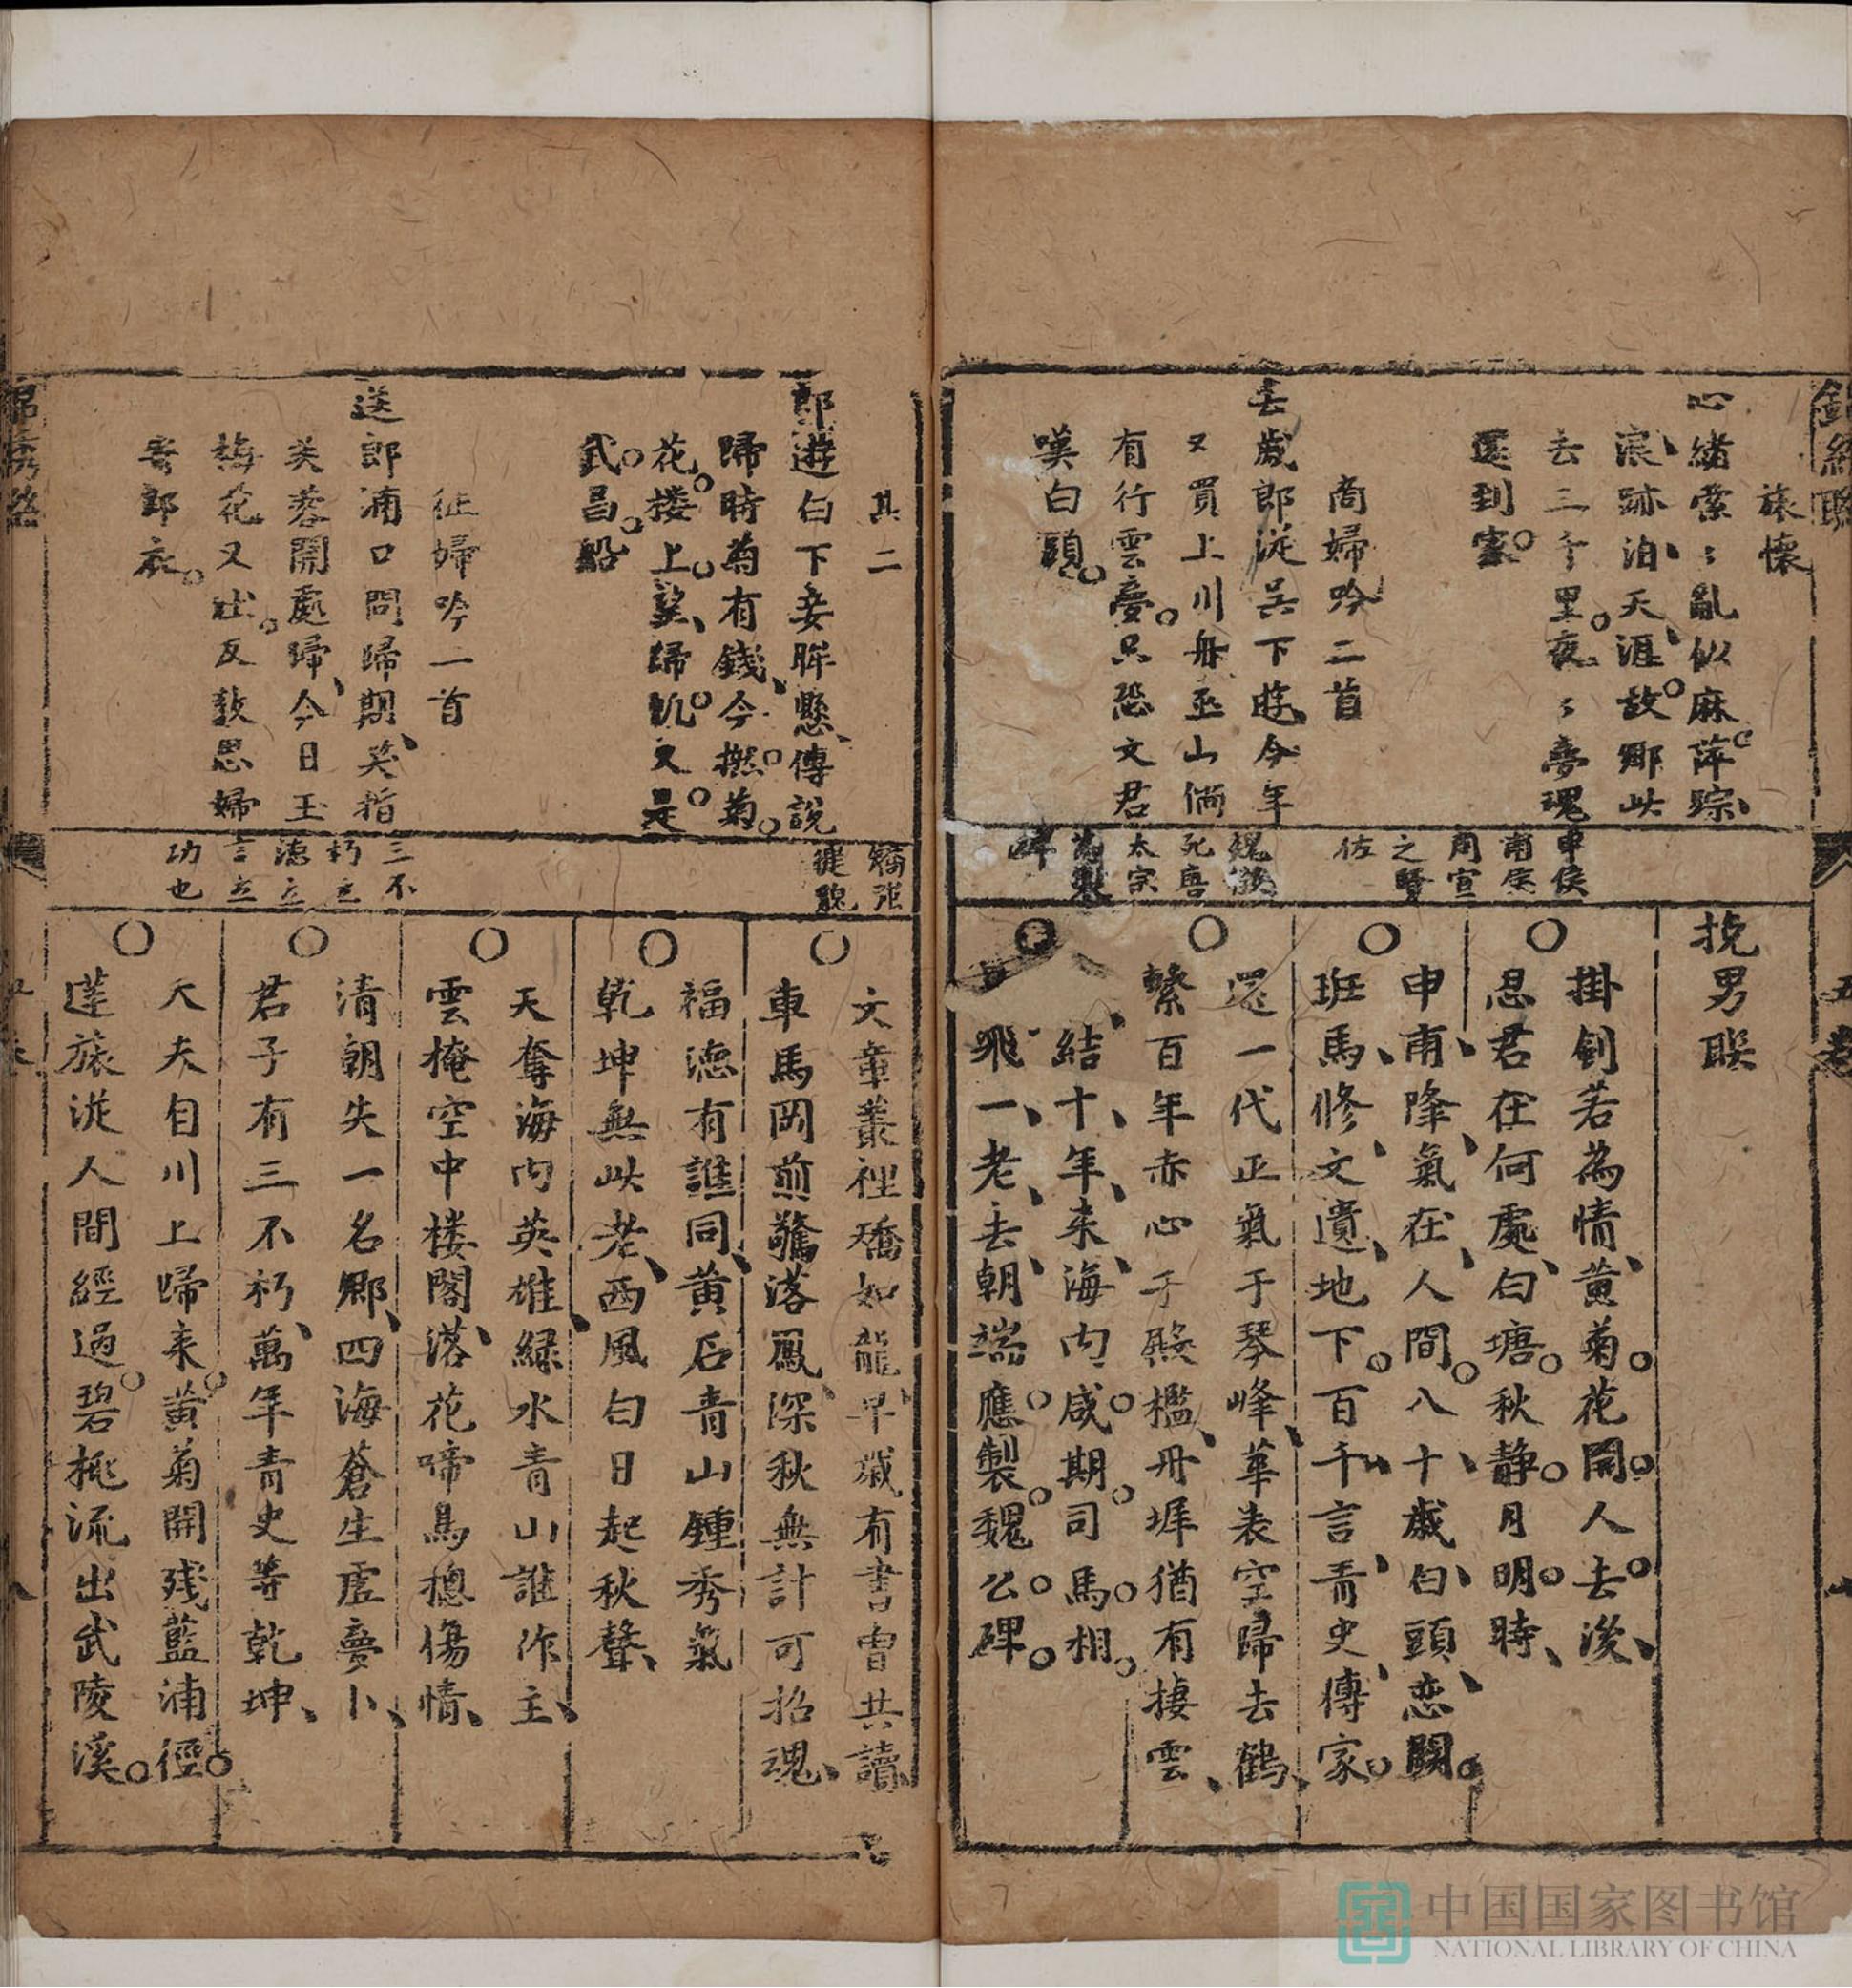 旅懷
心緒縈〻亂似麻萍踪
浪跡泊天涯故鄉此
去三千里夜〻夢魂
還到家
商婦吟二首
去歲郎從吳下遊今年
又買上川舟巫山倘
有行雲夢只恐文君
嘆白頭
申侯
甫侯
周宣
之賢
佐
魏徵
死唐
太宗
為製
碑
挽男聯
掛劍若為情黃菊花開人去後
思君在何處白塘秋靜月明時
申甫降氣在人間八十歲白頭恋闕
班馬修文遺地下百千言青史傳家
還一代正氣于琴峰華表空歸去鶴
繫百年赤心于殿檻丹墀猶有捿雲
結十年来海内咸期司馬相
飛一老去朝端應製魏公碑
其二
郎遊白下妾眸懸傳說
歸時菊有錢今撚菊
花楼上望歸帆又是
武昌船
征婦吟一首
送郎浦口問歸期笑指
芙蓉開處歸今日玉
梅花又吐反教思婦
寄郎衣
三不
朽立
德立
言立
功也
文章叢裡矯如龍早歲有書曾共讀
車馬岡前驚落鳳深秋無計可招魂
福德有誰同黄石青山鍾秀氣
乾坤無此老西風白日起秋聲
天奪海内英雄緑水青山誰作主
雲掩空中楼閣落花啼鳥揔傷情
清朝失一名鄉四海蒼生虗夢卜
君子有三不朽萬年青史等乾坤
大夫自川上歸来黄菊開残藍浦徑
蓬旅從人間經過碧桃流出武陵溪
中国国家图书馆
NATIONAL LIBRARY OF CHINA